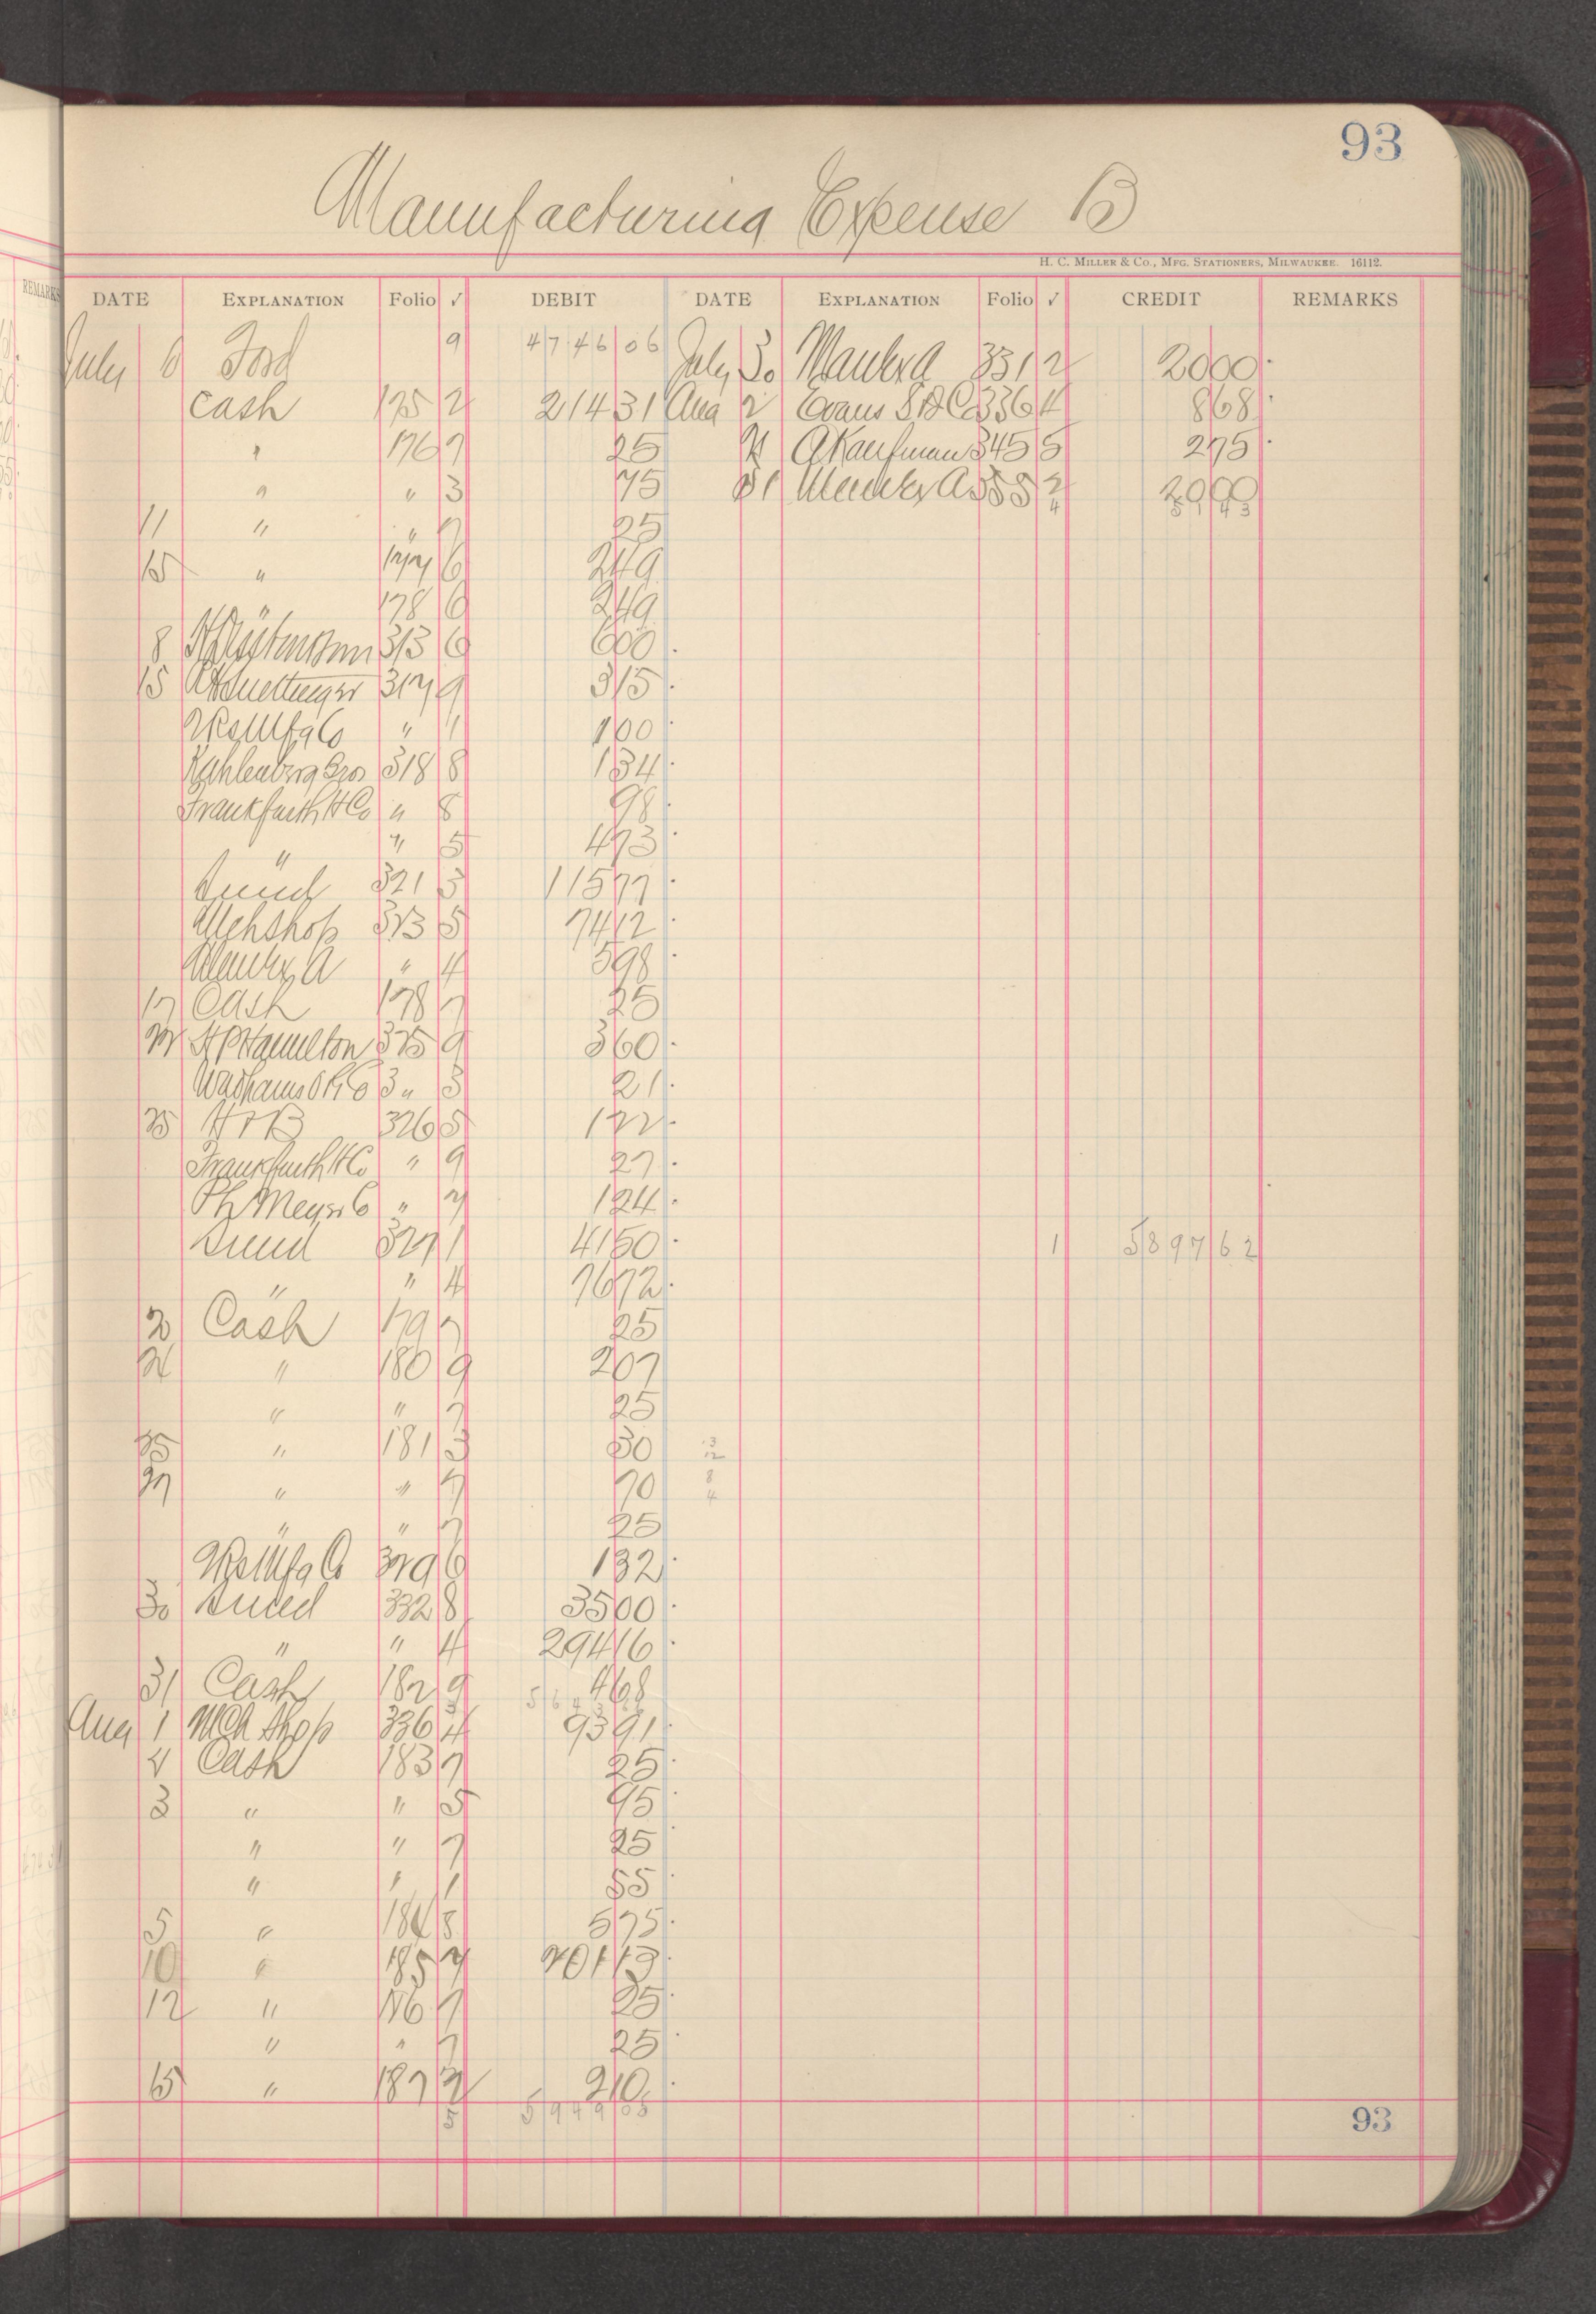 93
Manufacturing Expense B
H. C. MILLER & CO., MFG. STATIONERS, MILWAUKEE. 16112.
REMARKS
DATE EXPLANATION Folio √ DEBIT DATE EXPLANATION Folio √ CREDIT REMARKS
July 6 Ford 9 4746 06 July 30 331 2 20 00
Cash 175 2 214 31 Aug 2 Evans S & Co 336 4 8 68
" 176 7 25 A Kaufman 345 5 2 75
" " 3 75 31 2 20 00
4 51 43
11 " " 7 25
15 " 177 6 2 49
" 178 6 2 49
8 313 6 6 00
15 317 9 3 15
Mfg Co " 1 1 00
Kahlenberg Bros 318 8 1 34
Frankfurth H Co " 8 98
" " 5 4 73
Sund 321 3 115 77
Mch Shop 323 5 74 12
" 4 5 98
17 Cash 178 7 25
H P Hamilton 325 9 3 60
Wadhams O Co 3 " 3 21
25 H & B 326 5 1 72
Frankfurth H Co " 9 27
Ph Meyer Co " 7 1 24
Sund 327 1 41 50 1 5897 62
" " 4 76 72
20 Cash 179 7 25
" 180 9 2 07
" " 7 25
25 " 181 3 30 3
12
27 " " 7 70 8
4
" " 7 25
Mfg Co 329 6 1 32
30 Sund 332 8 35 00
" " 4 294 16
31 Cash 182 9 4 68
Aug 1 Mch Shop 336 4 93 91
4 Cash 183 7 25
3 " " 5 95
" " 7 25
" " 1 55
5 " 184 8 5 75
10 " 185 7 201 13
12 " 186 7 25
" " 7 25
15 " 187 2 2 10
5 5949 05
93